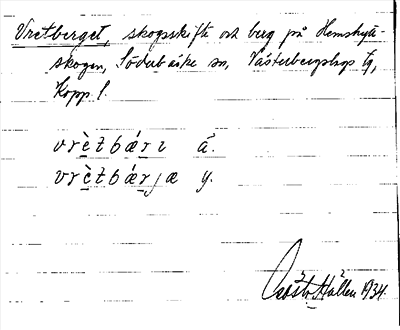 Vretberget, skogsskifte och berg på Hemshytte-
skogen, Söderbärke sn, Västerbergslags tg,
Kopp. l.
vrètbárɩ ä.
vrètbárjæ y.
Hallen 1934.